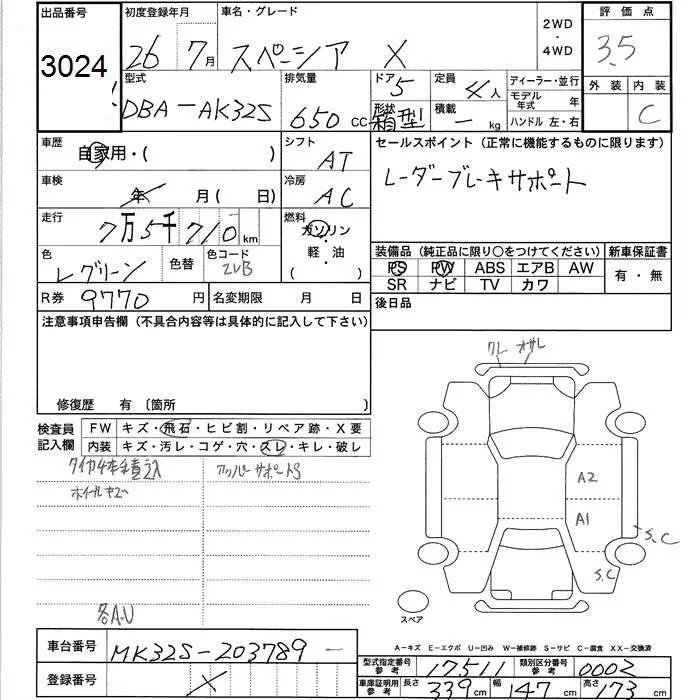 出品番号 初度登録年月 車名・グレード 2WD・4WD 評価点
3024 26 7月 スペーシア X 3.5
型式 排気量 ドア 5 定員 4人 ディーラー・並行 外装 内装
DBA-AK32S 650 cc 形状 箱型 積載 - kg モデル年式 年 C
ハンドル 左・右
車歴 自家用・( ) シフト AT セールスポイント(正常に機能するものに限ります)
車検 年 月(日) 冷房 AC レーダーブレーキサポート
走行 7万5千710km 燃料 ガソリン・軽油( )
色 レグリーン 色替 色コード ZVB 装備品(純正品に限り○をつけてください) 新車保証書
PS PW ABS エアB AW 有・無
R券 9770円 名変期限 月 日 SR ナビ TV カワ
注意事項申告欄(不具合内容等は具体的に記入して下さい) 後日品
クレ オサレ
修復歴 有 〔箇所 〕
検査員記入欄 FW キズ・飛石・ヒビ割・リペア跡・X要
内装 キズ・汚レ・コゲ・穴・スレ・キレ・破レ
タイヤ4本積込 アッパーサポートS
ホイールキズ
A2
A1
S.C
S.C
各A.U
スペア
A-キズ E-エクボ U-凹み W-補修跡 S-サビ C-腐食 XX-交換済
車台番号 MK32S-203789-
登録番号 X
型式指定番号 参考 17511 類別区分番号 参考 0002
車庫証明用 参考 長さ 339cm 幅 147cm 高さ 173cm